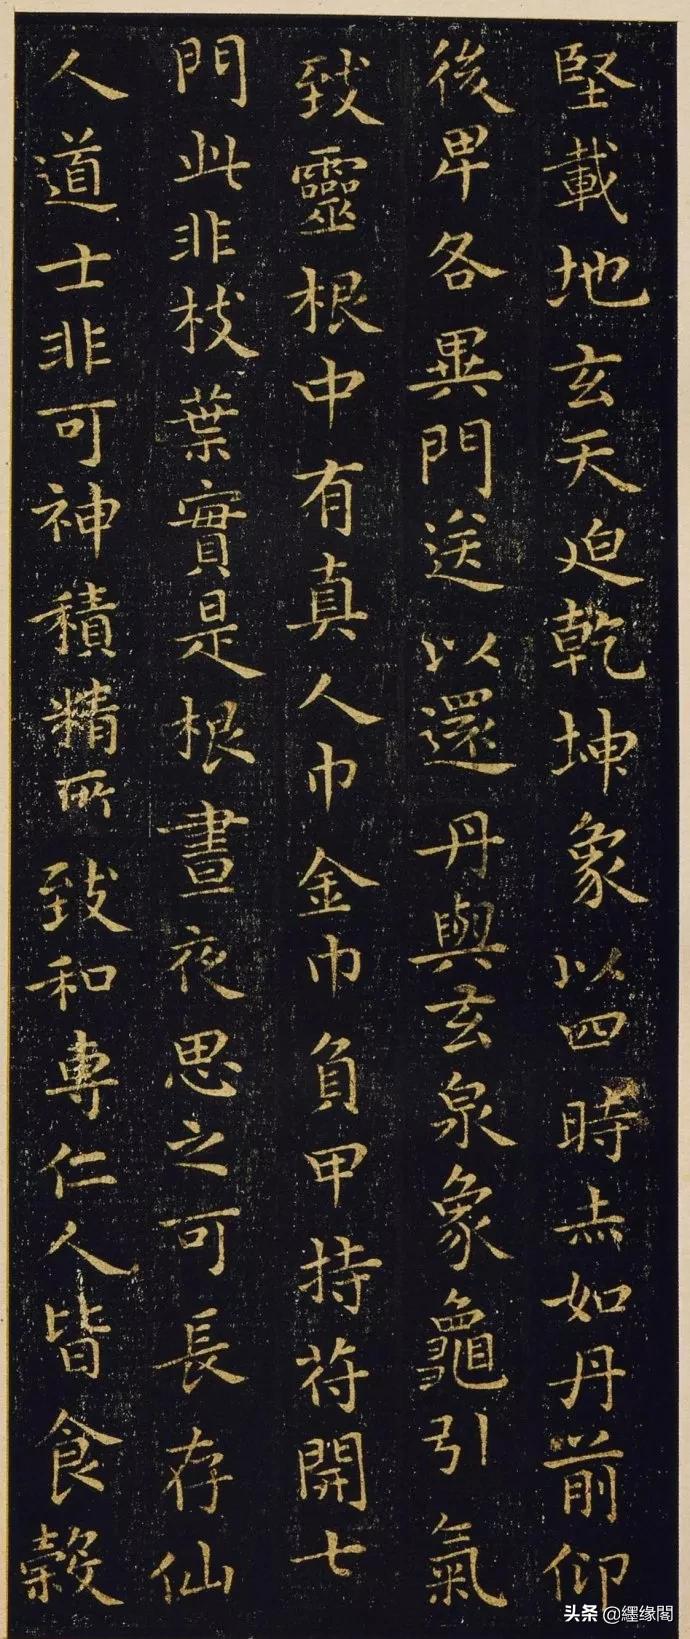 堅載地玄天迫乾坤象以四時赤如丹前仰
後卑各異門送以還丹與玄泉象龜引氣
致靈根中有真人巾金巾負甲持符開七
門此非枝葉實是根晝夜思之可長存仙
人道士非可神積精所致和專仁人皆食穀
头条 @纆缘閣